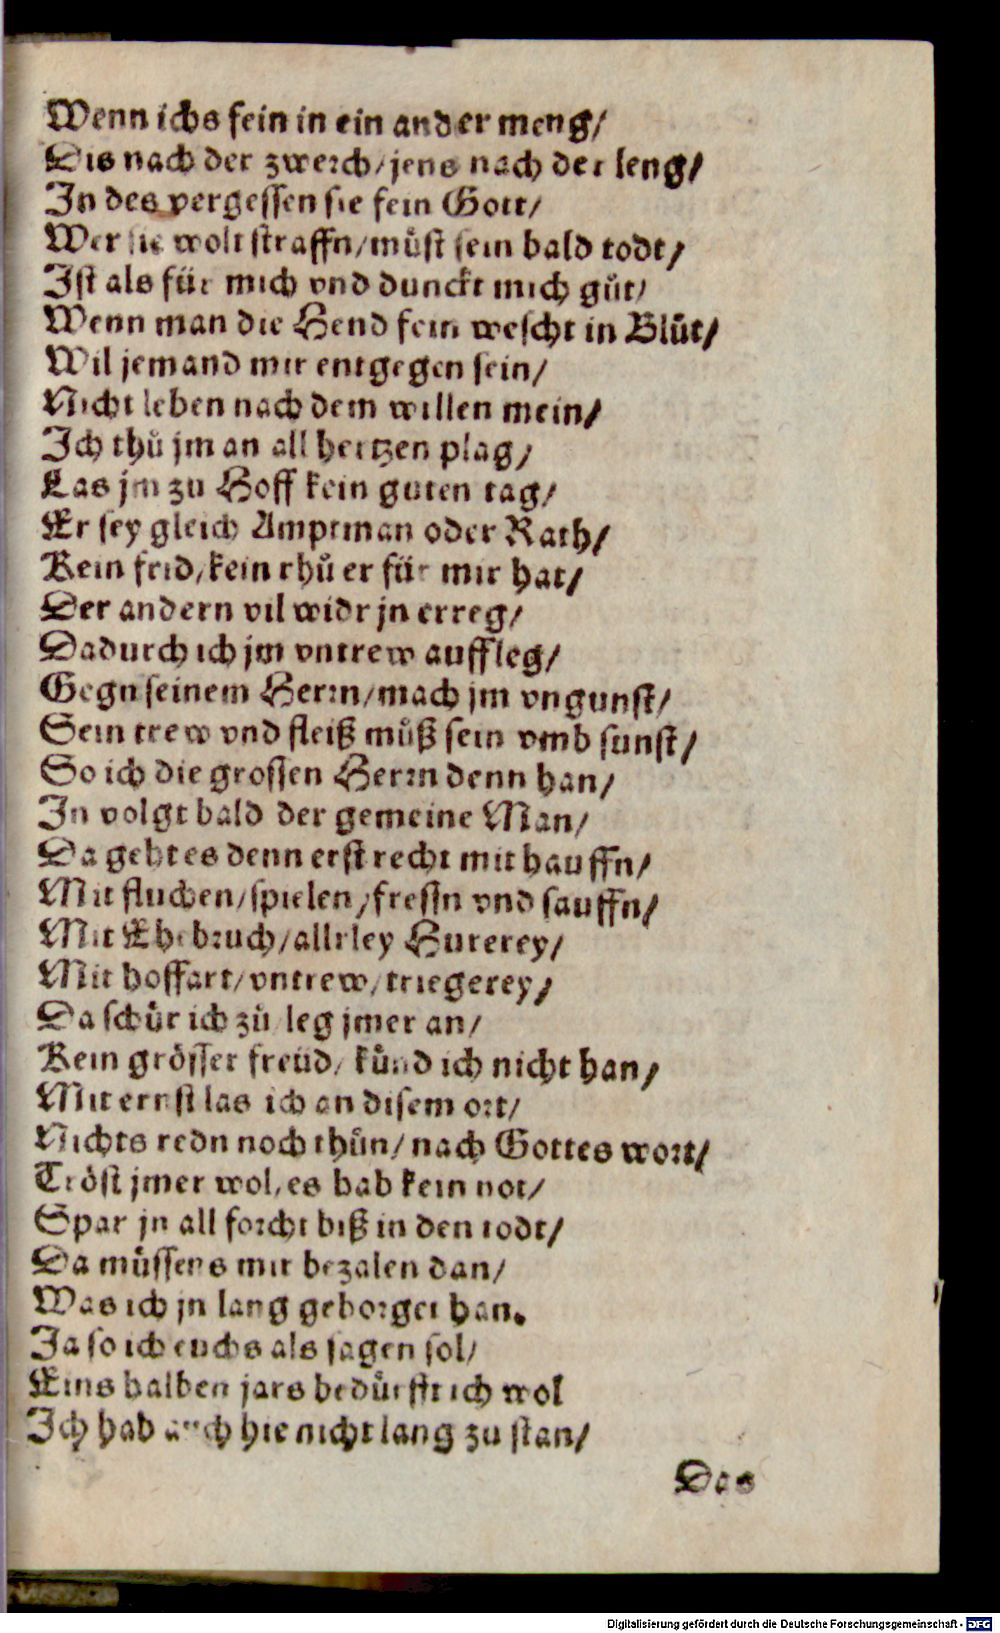 Wenn ichs fein in ein ander meng/
Dis nach der zwerch/jens nach der leng/
In des vergessen sie fein Gott/
Wer sie wolt straffn/můst sein bald todt/
Ist als für mich vnd dunckt mich gůt/
Wenn man die Hend fein wescht in Blůt/
Wil jemand mir entgegen sein/
Nicht leben nach dem willen mein/
Ich thů jm an all hertzen plag/
Las jm zu Hoff kein guten tag/
Er sey gleich Amptman oder Rath/
Kein frid/kein rhů er für mir hat/
Der andern vil widr jn erreg/
Dadurch ich jm vntrew auffleg/
Gegn seinem Herrn/mach jm vngunst/
Sein trew vnd fleiß můß sein vmb sunst/
So ich die grossen Herrn denn han/
In volgt bald der gemeine Man/
Da geht es denn erst recht mit hauffn/
Mit fluchen/spielen/fressn vnd sauffn/
Mit Ehebruch/allrley Hurerey/
Mit hoffart/vntrew/triegerey/
Da schür ich zů/leg jmer an/
Kein grösser freüd/künd ich nicht han/
Mit ernst las ich an disem ort/
Nichts redn noch thůn/nach Gottes wort/
Tröst jmer wol/es hab kein not/
Spar jn all forcht biß in den todt/
Da müssens mir bezalen dan/
Was ich jn lang geborget han.
Ja so ich euchs als sagen sol/
Eins halben jars bedürfft ich wol
Ich hab auch hie nicht lang zu stan/
Das
Digitalisierung gefördert durch die Deutsche Forschungsgemeinschaft - DFG